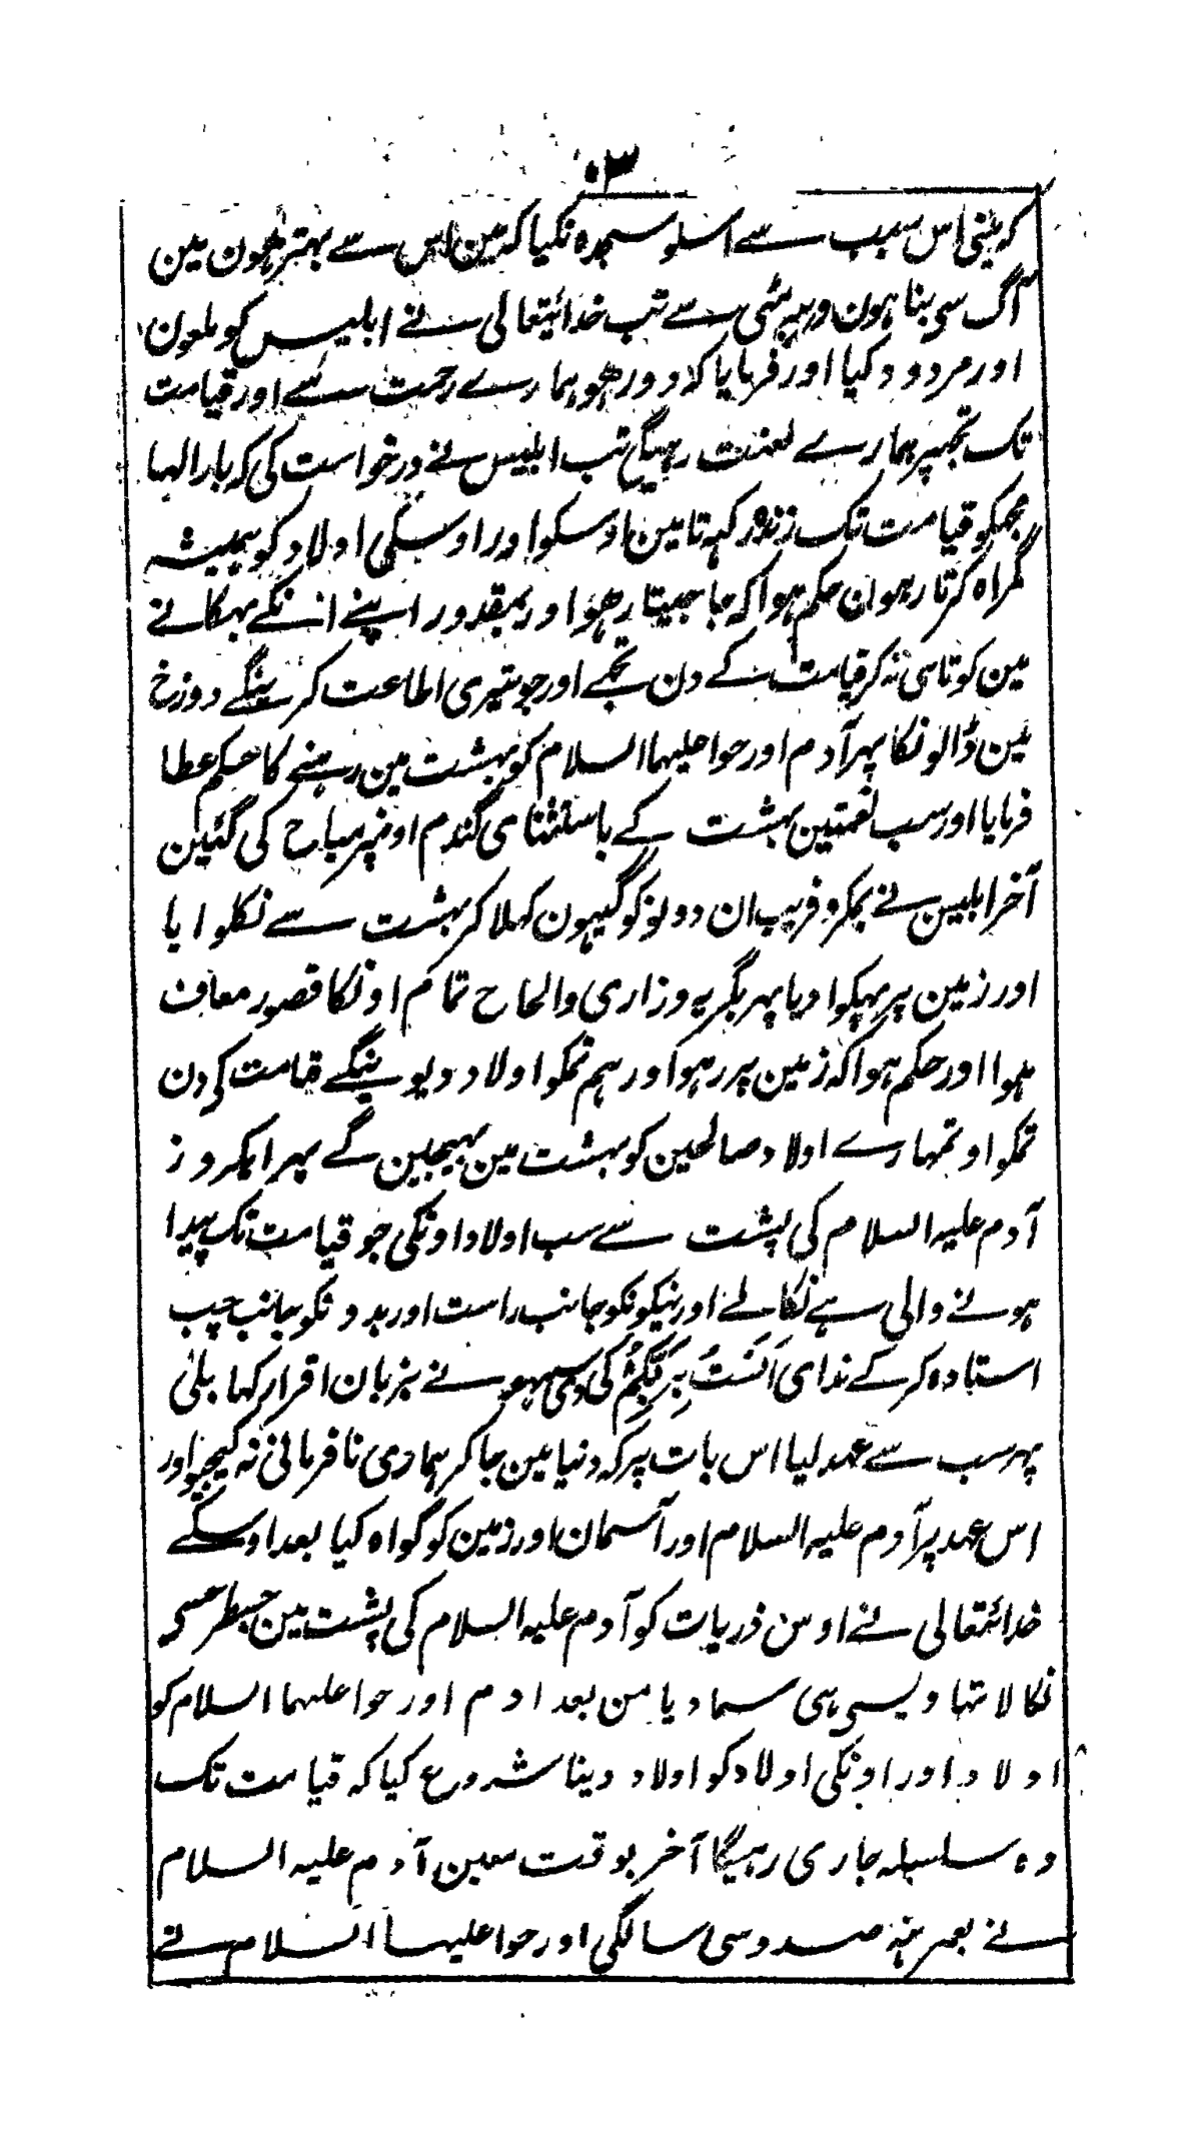 ۳۰
کہ مینی اس سبب سے اسلو سجدہ نکیا کہ مین اس سے بہتر ہون مین
آگ سی بنا ہون وہ یہ مٹی سے تب خدائیتعالی نے ابلیس کو ملعون
اور مردود کیا اور فرمایا کہ دور ہو ہمارے رحمت سے اور قیامت
تک تجہپر ہمارے لعنت رہیگی تب ابلیس نے درخواست کی کہ بار الہا
مجہکو قیامت تک زندہ رکہہ تا مین اوسکو اور اوسکی اولاد کو ہمیشہ
گمراہ کرتا رہون حکم ہوا کہ جا جیتا رہو اور بمقدور اپنے انکے بہکانے
مین کوتاہی نہ کر قیامت کے دن تجہے اور جو تیری اطاعت کرینگے دوزخ
مین ڈالونگا پہر آدم اور حوا علیہما السلام کو بہشت مین رہنے کا حکم عطا
فرمایا اور سب نعمتین بہشت کے باستثنای گندم اونپر مباح کی گئین
آخر ابلیس نے بمکر و فریب ان دونو کو گیہون کہلا کر بہشت سے نکلوایا
اور زمین پر پہکوا دیا پہر بگریہ و زاری و الحاح تمام اونکا قصور معاف
ہوا اور حکم ہوا کہ زمین پر رہو اور ہم تمکو اولاد دیوینگے قیامت کی دن
تمکو او تمہارے اولاد صالحین کو بہشت مین بہیجین گے پہر ایکروز
آدم علیہ السلام کی پشت سے سب اولاد اونکی جو قیامت تک پیدا
ہونے والی ہے نکالے اور نیکونکو جانب راست اور بدونکو بجانب چپ
استادہ کر کے ندای اَلَستُ بِرَبِّکُمْ کی دی سبہو نے بزبان اقرار کہا بلیٰ
پہر سب سے عہد لیا اس بات پر کہ دنیا مین جا کر ہماری نافرمانی نہ کیجیو اور
اس عہد پر آدم علیہ السلام اور آسمان اور زمین کو گواہ کیا بعد اوسکے
خدائتعالی نے اوس ذریات کو آدم علیہ السلام کی پشت مین جسطرحسی
نکالا تہا ویسی ہی سما دیا من بعد ادم اور حوا علیہما السلام کو
اولاد اور اونکی اولاد کو اولاد دینا شروع کیا کہ قیامت تک
وہ سلسلہ جاری رہیگا آخر بوقت معین آدم علیہ السلام
نے بعمر نہصد و سی سالگی اور حوا علیہا السلام نے